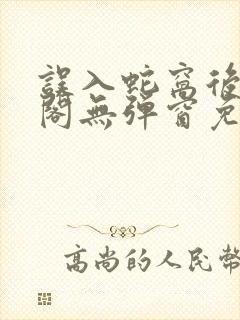 誤入蛇窩後
閣無彈窗免
高尚的人民幣